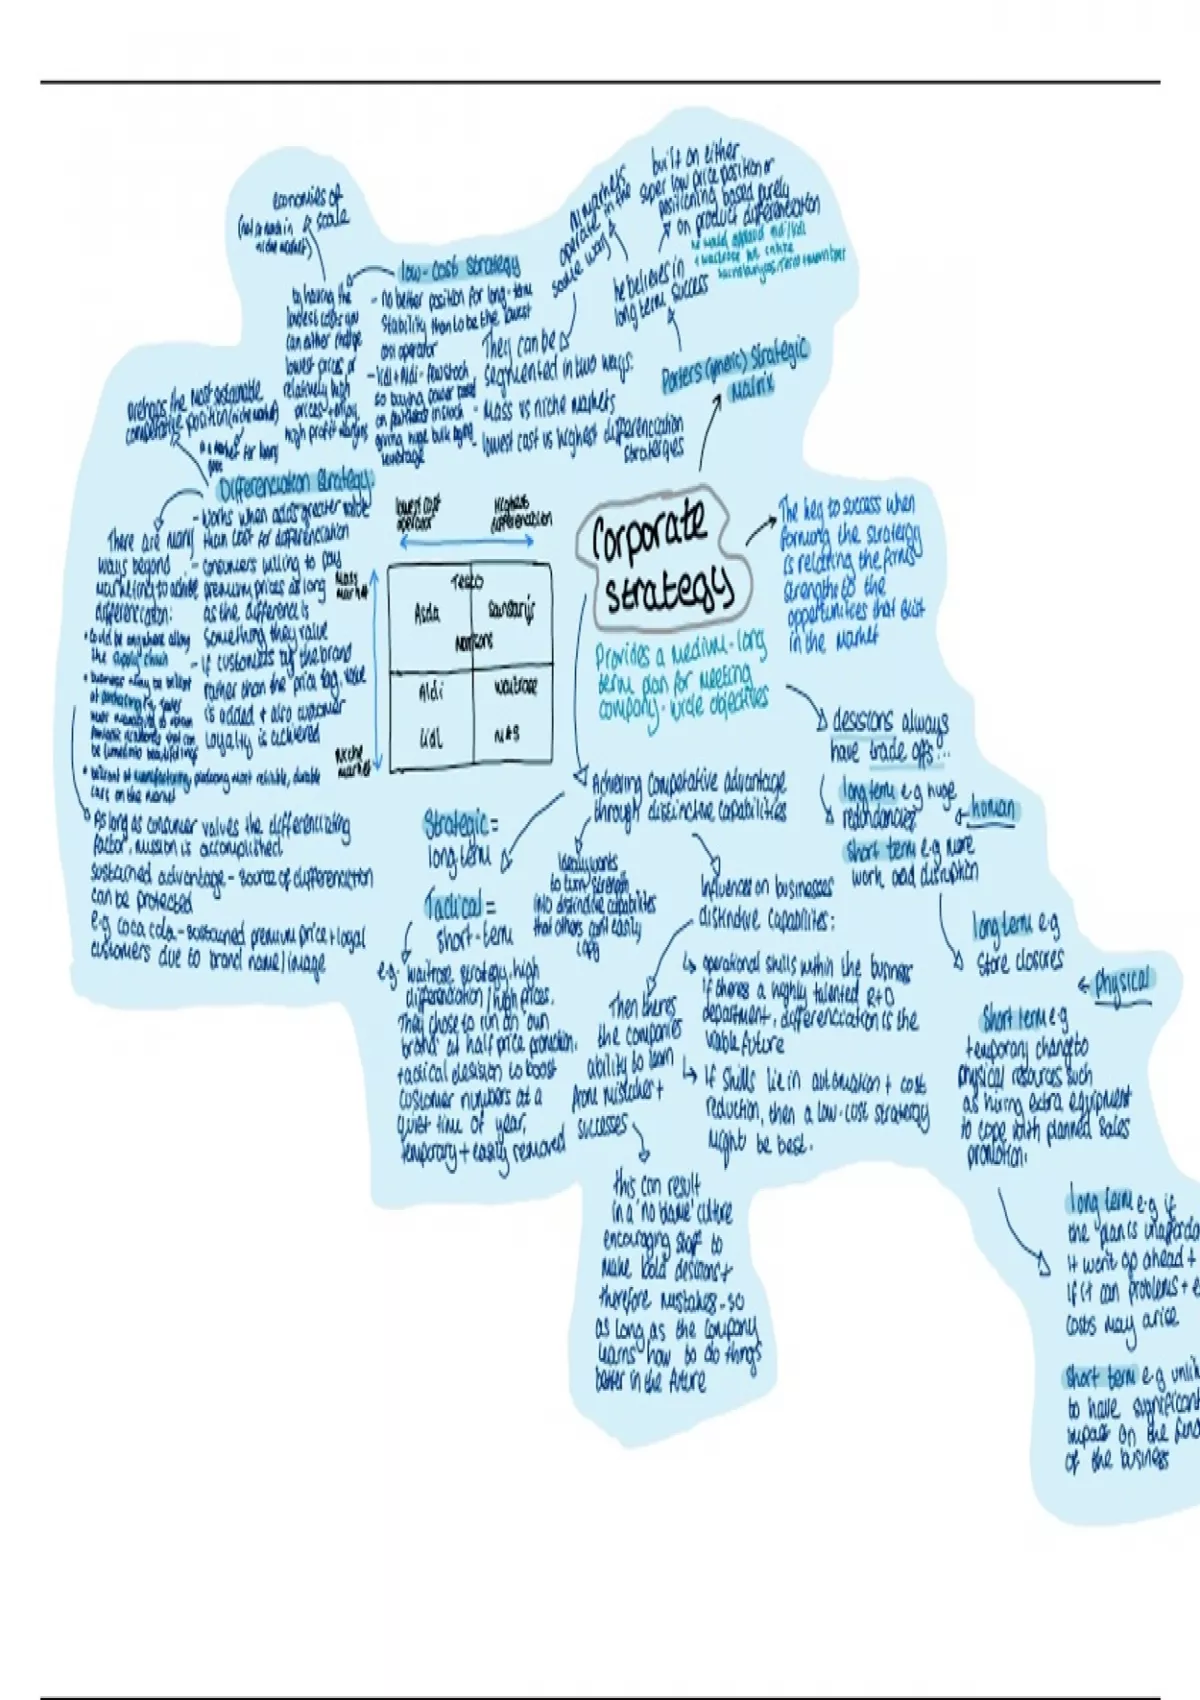 Corporate
strategy
Provides a medium-long
term plan for meeting
company-wide objectives
The key to success when
forming the strategy
is relating the firms
strengths to the
opportunities that exist
in the market
Porters (generic) strategic
matrix
he believes in
long term success
built on either
super low price position or
positioning based purely
on product differenciation
all markets
operate in the
same way
They can be
segmented in two ways:
- Mass vs niche markets
- lowest cost vs highest differenciation
strategies
low-cost strategy
- no better position for long-term
stability than to be the lowest
cost operator
- Lidl + Aldi - few stock
so buying power based
giving huge bulk buying
leverage
by having the
lowest costs you
can either charge
lowest prices or
relatively high
prices + enjoy
high profit margins
economies of
scale
(not so much in
niche markets)
Differenciation Strategy:
- Works when adds greater value
than cost for differenciation
- consumers willing to pay
premium prices as long
as the difference is
something they value
- if customers buy the brand
rather than the price tag, value
is added + also customer
loyalty is achieved
perhaps the most sustainable
competitive position (niche market)
There are many
ways beyond
marketing to achieve
differenciation:
• could be anywhere along
the supply chain
• brilliant at manufacturing producing most reliable, durable
cars on the market
As long as consumer values the differenciating
factor, mission is accomplished
sustained advantage - source of differenciation
can be protected
e.g. coca cola - sustained premium price + loyal
customers due to brand name/image
lowest cost
operator
Highest
differenciation
Mass
market
Niche
market
Tesco
Asda
Sainsburys
Morrisons
Aldi
Waitrose
Lidl
M+S
Achieving competative advantage
through distinctive capabilities
Strategic =
long term
Tactical =
short-term
e.g. waitrose strategy, high
differenciation/high prices.
They chose to run an own
brand at half price promotion.
tactical desision to boost
customer numbers at a
quiet time of year,
temporary + easily removed
Ideally wants
to turn strength
into distinctive capabilites
that others cant easily
copy
Influences on businesses
distinctive capabilites:
↳ operational skills within the business
if theres a highly talented R+D
department, differenciation is the
viable future
↳ If skills lie in automation + cost
reduction, then a low-cost strategy
might be best.
Then theres
the companies
ability to learn
from mistakes +
successes
this can result
in a 'no blame' culture
encouraging staff to
make bold desisions +
therefore mistakes - so
as long as the company
learns how to do things
better in the future
desisions always
have trade offs...
long term e.g huge
redundancies
human
short term e.g more
work, and disruption
long term e.g
store closures
physical
Short term e.g
temporary change to
physical resources such
as hiring extra equipment
to cope with planned sales
promotion.
long term e.g if
the plan is
it won't go ahead +
if it can problems +
costs may arise
short term e.g
to have significant
impact on the
of the business